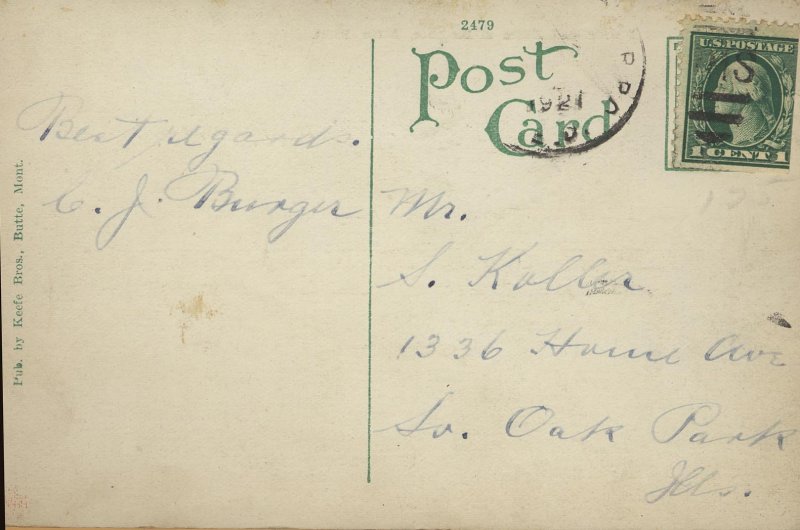 2479
Post
Card
1921
U.S. POSTAGE
1 CENT 1
Best regards.
C. J. Burger
Mr.
S. Koller
1336 Home Ave
So. Oak Park
Ills.
Pub. by Keefe Bros., Butte, Mont.